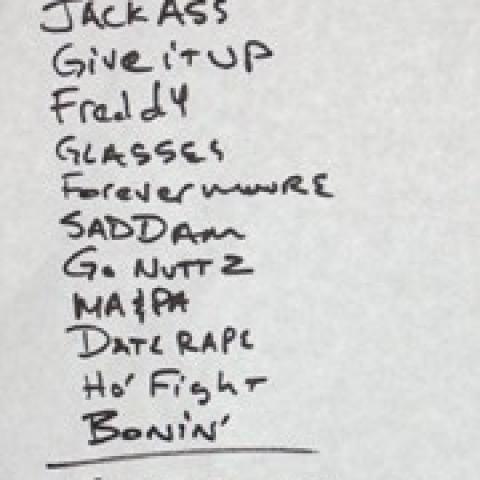 JACKASS
Give iT UP
Freddy
GLASSES
Forever MWRE
SADDAM
Go NUTTZ
MA & PA
DATE RAPE
Ho' Fight
BONIN'